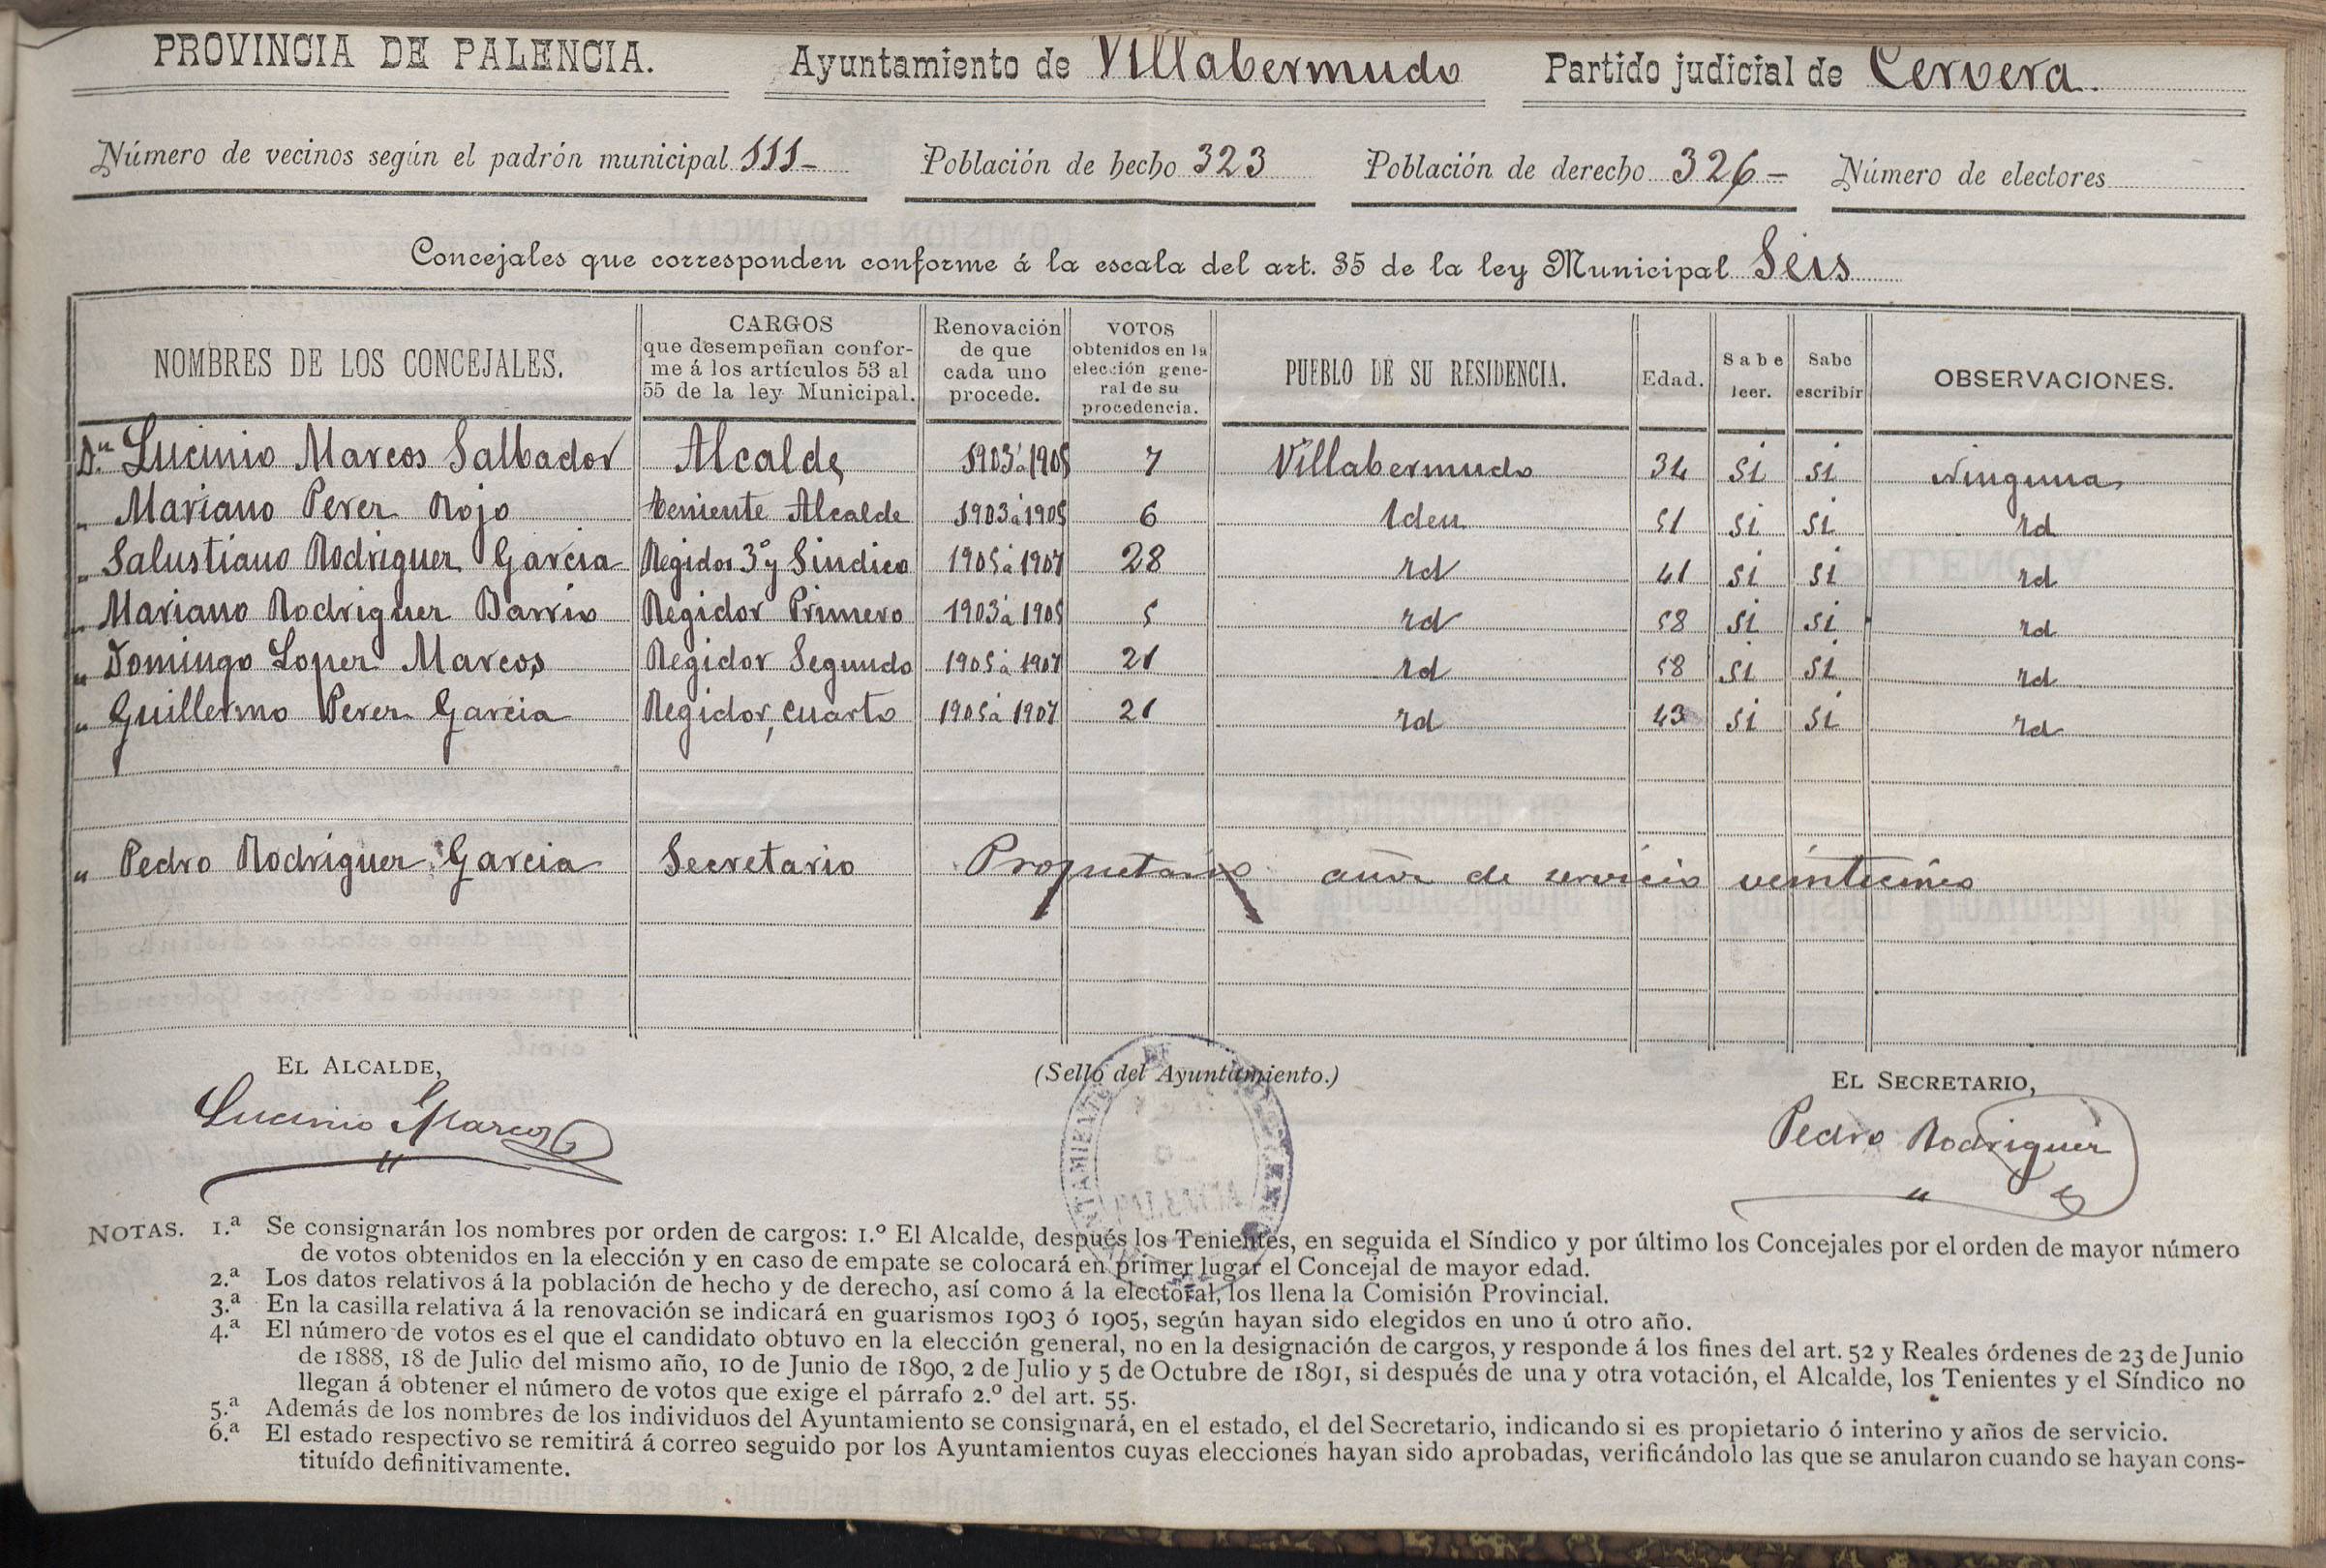 PROVINCIA DE PALENCIA. Ayuntamiento de Villabermudo Partido judicial de Cervera.
Número de vecinos según el padrón municipal 111- Población de hecho 323 Población de derecho 326- Número de electores
Concejales que corresponden conforme á la escala del art. 35 de la ley Municipal Seis
NOMBRES DE LOS CONCEJALES.
CARGOS
que desempeñan confor-
me á los artículos 53 al
55 de la ley Municipal.
Renovación
de que
cada uno
procede.
VOTOS
obtenidos en la
elección gene-
ral de su
procedencia.
PUEBLO DE SU RESIDENCIA.
Edad.
Sabe
leer.
Sabe
escribir
OBSERVACIONES.
Dn Lucinio Marcos Salbador Alcalde 1903 á 1905 7 Villabermudo 34 Si Si Ninguna
" Mariano Perez Rojo teniente Alcalde 1903 á 1905 6 Iden 51 Si Si id
" Salustiano Rodriguez Garcia Regidor 3º y Sindico 1905 á 1907 28 id 41 Si Si id
" Mariano Rodriguez Barrio Regidor Primero 1903 á 1905 5 id 58 Si Si id
" Domingo Lopez Marcos Regidor Segundo 1905 á 1907 21 id 58 Si Si id
" Guillermo Perez Garcia Regidor, cuarto 1905 á 1907 21 id 43 Si Si id
" Pedro Rodriguez Garcia Secretario Propietario años de servicio veinticinco
EL ALCALDE, (Sello del Ayuntamiento.) EL SECRETARIO,
Lucinio Marcos Pedro Rodriguez
NOTAS. 1.ª Se consignarán los nombres por orden de cargos: 1.º El Alcalde, después los Tenientes, en seguida el Síndico y por último los Concejales por el orden de mayor número
de votos obtenidos en la elección y en caso de empate se colocará en primer lugar el Concejal de mayor edad.
2.ª Los datos relativos á la población de hecho y de derecho, así como á la electoral, los llena la Comisión Provincial.
3.ª En la casilla relativa á la renovación se indicará en guarismos 1903 ó 1905, según hayan sido elegidos en uno ú otro año.
4.ª El número de votos es el que el candidato obtuvo en la elección general, no en la designación de cargos, y responde á los fines del art. 52 y Reales órdenes de 23 de Junio
de 1888, 18 de Julio del mismo año, 10 de Junio de 1890, 2 de Julio y 5 de Octubre de 1891, si después de una y otra votación, el Alcalde, los Tenientes y el Síndico no
llegan á obtener el número de votos que exige el párrafo 2.º del art. 55.
5.ª Además de los nombres de los individuos del Ayuntamiento se consignará, en el estado, el del Secretario, indicando si es propietario ó interino y años de servicio.
6.ª El estado respectivo se remitirá á correo seguido por los Ayuntamientos cuyas elecciones hayan sido aprobadas, verificándolo las que se anularon cuando se hayan cons-
tituído definitivamente.